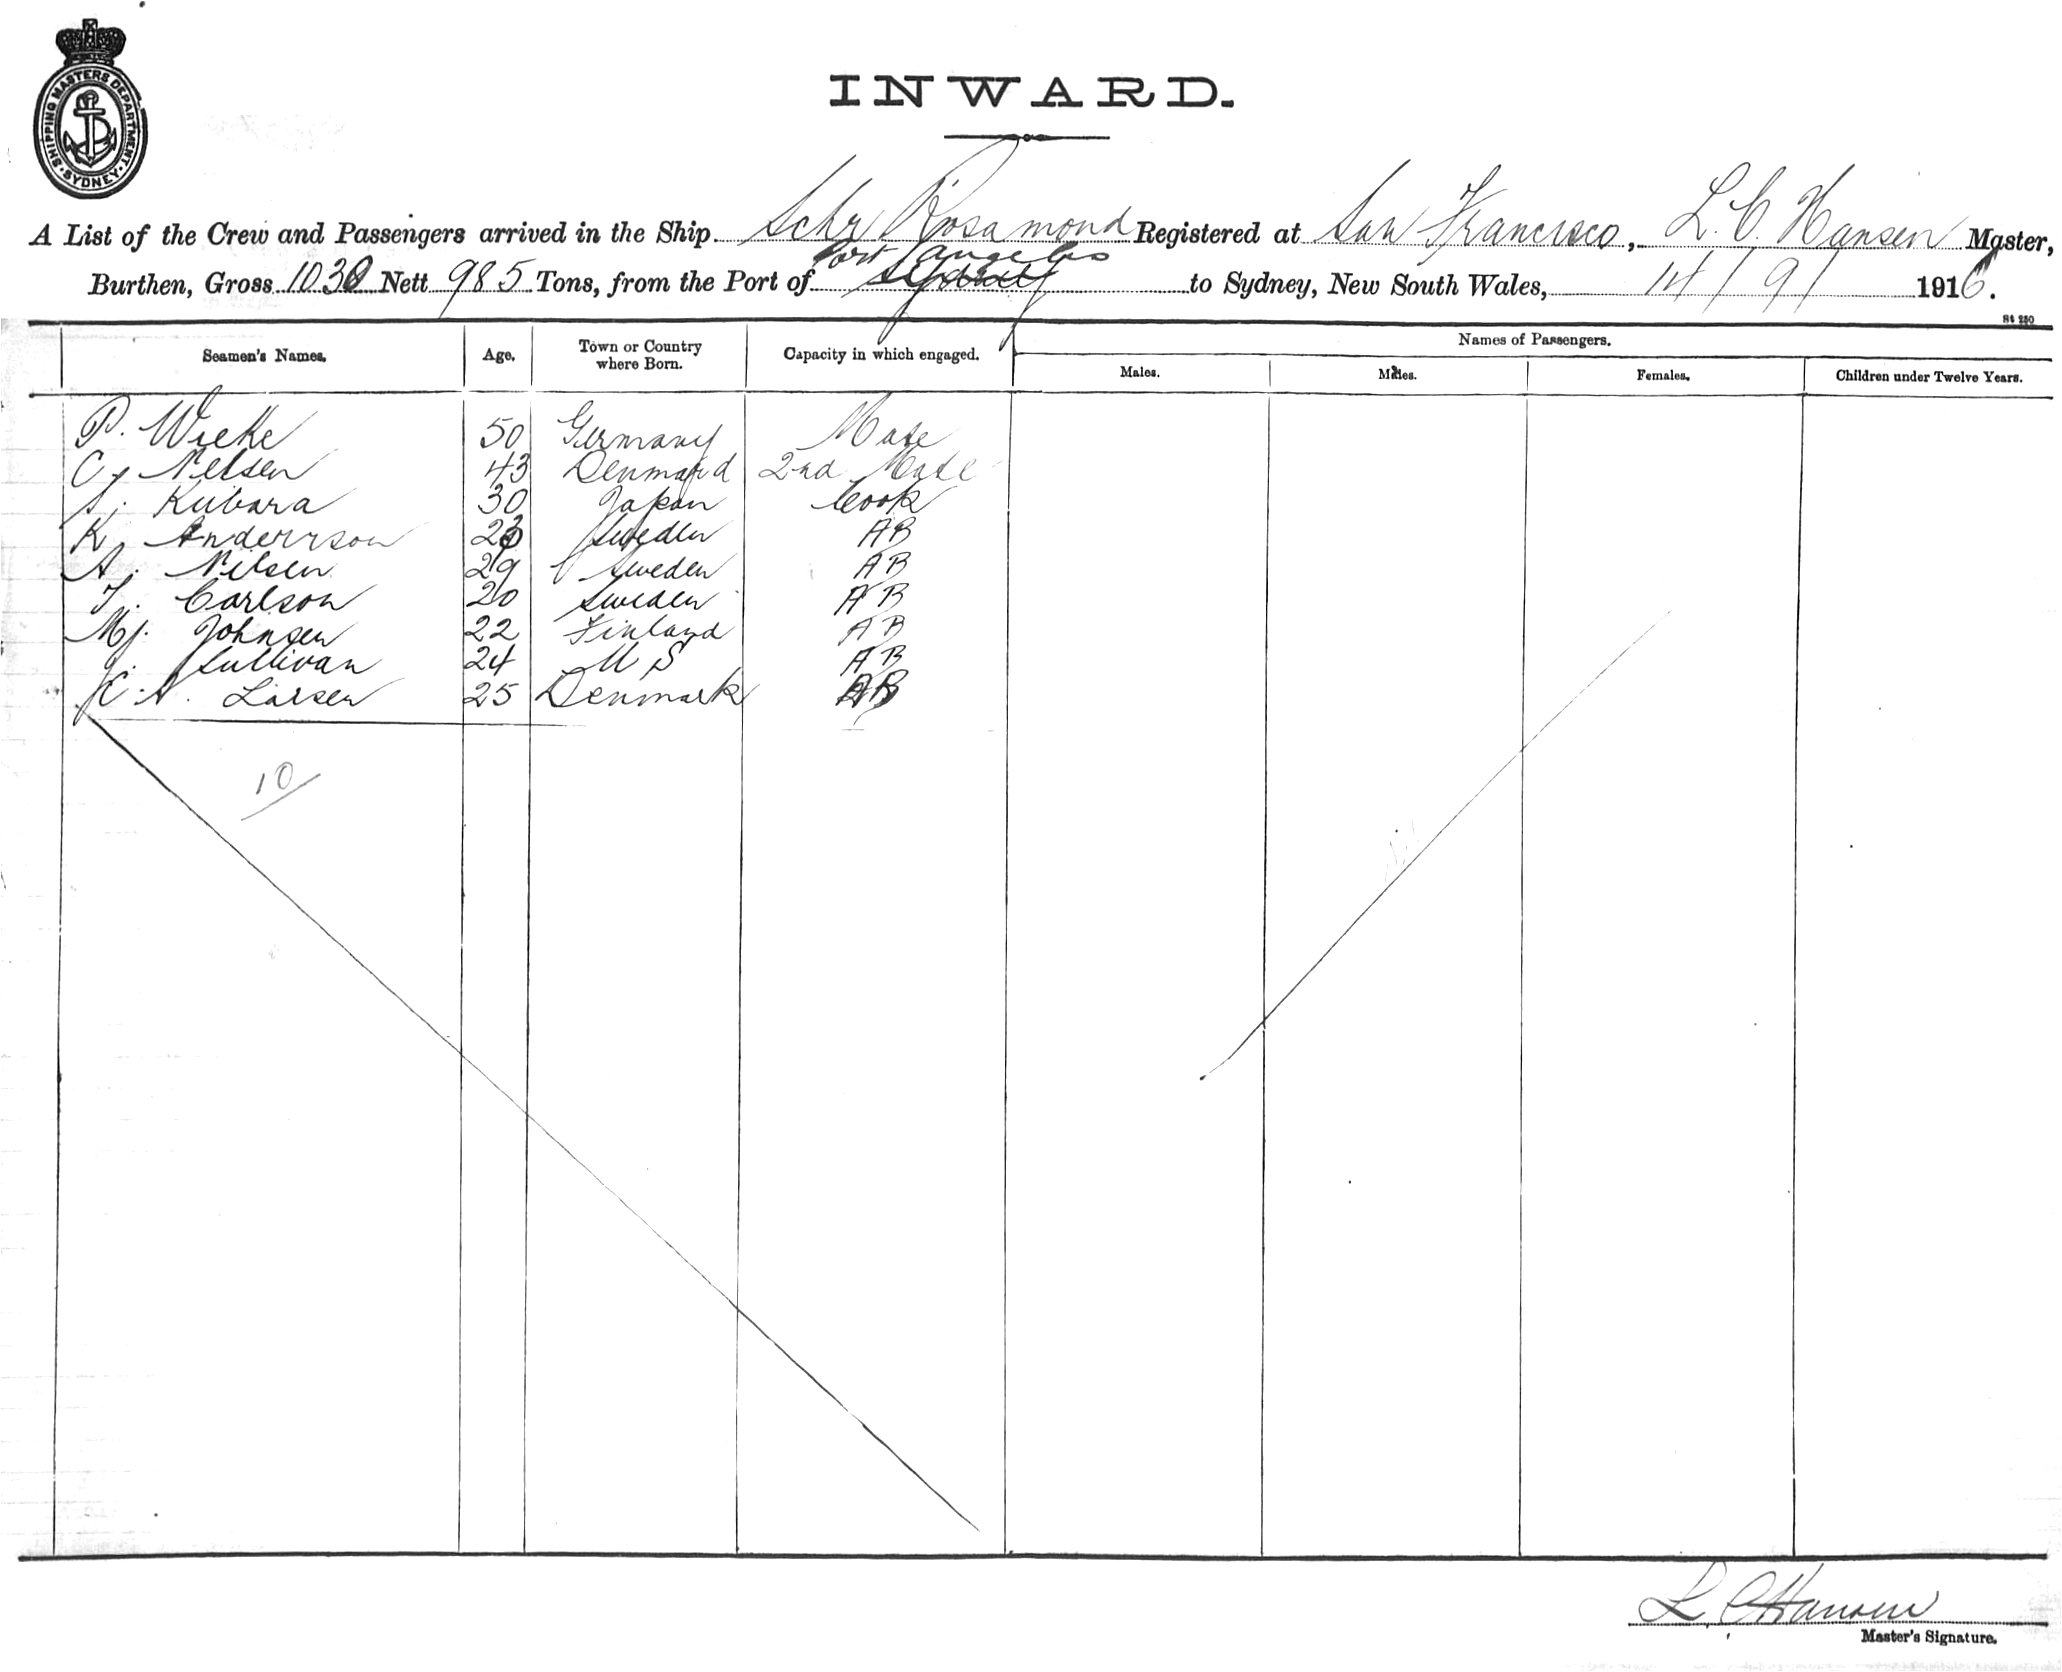 SHIPPING MASTERS DEPARTMENT
SYDNEY
INWARD.
A List of the Crew and Passengers arrived in the Ship Schr Rosamond Registered at San Francisco, L. C. Hansen Master,
Port Angeles
Burthen, Gross 1030 Nett 985 Tons, from the Port of Sydney to Sydney, New South Wales, 14/9/ 1916.
St 250
Seamen's Names. Age. Town or Country where Born. Capacity in which engaged. Names of Passengers.
Males. Males. Females. Children under Twelve Years.
P. Wieke 50 Germany Mate
C. Nelsen 43 Denmard 2nd Mate
S. Kubara 30 Japan Cook
K. Anderrson 23 Sweden AB
A. Nilsen 29 Sweden AB
T. Carlson 20 Sweden AB
M. Johnsen 22 Finland AB
J. Sullivan 24 U S AB
C. A. Larsen 25 Denmark AB
10
L. C. Hansen
Master's Signature.